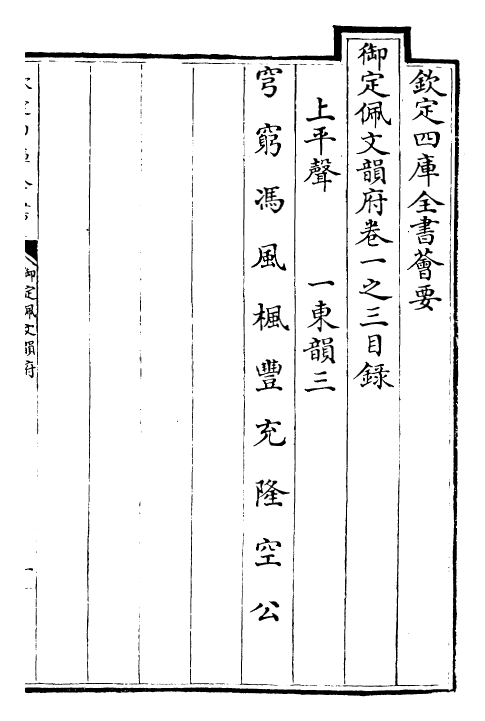 欽定四庫全書薈要
御定佩文韻府卷一之三目錄
上平聲　一東韻三
穹窮馮風楓豐充隆空公
御定佩文韻府